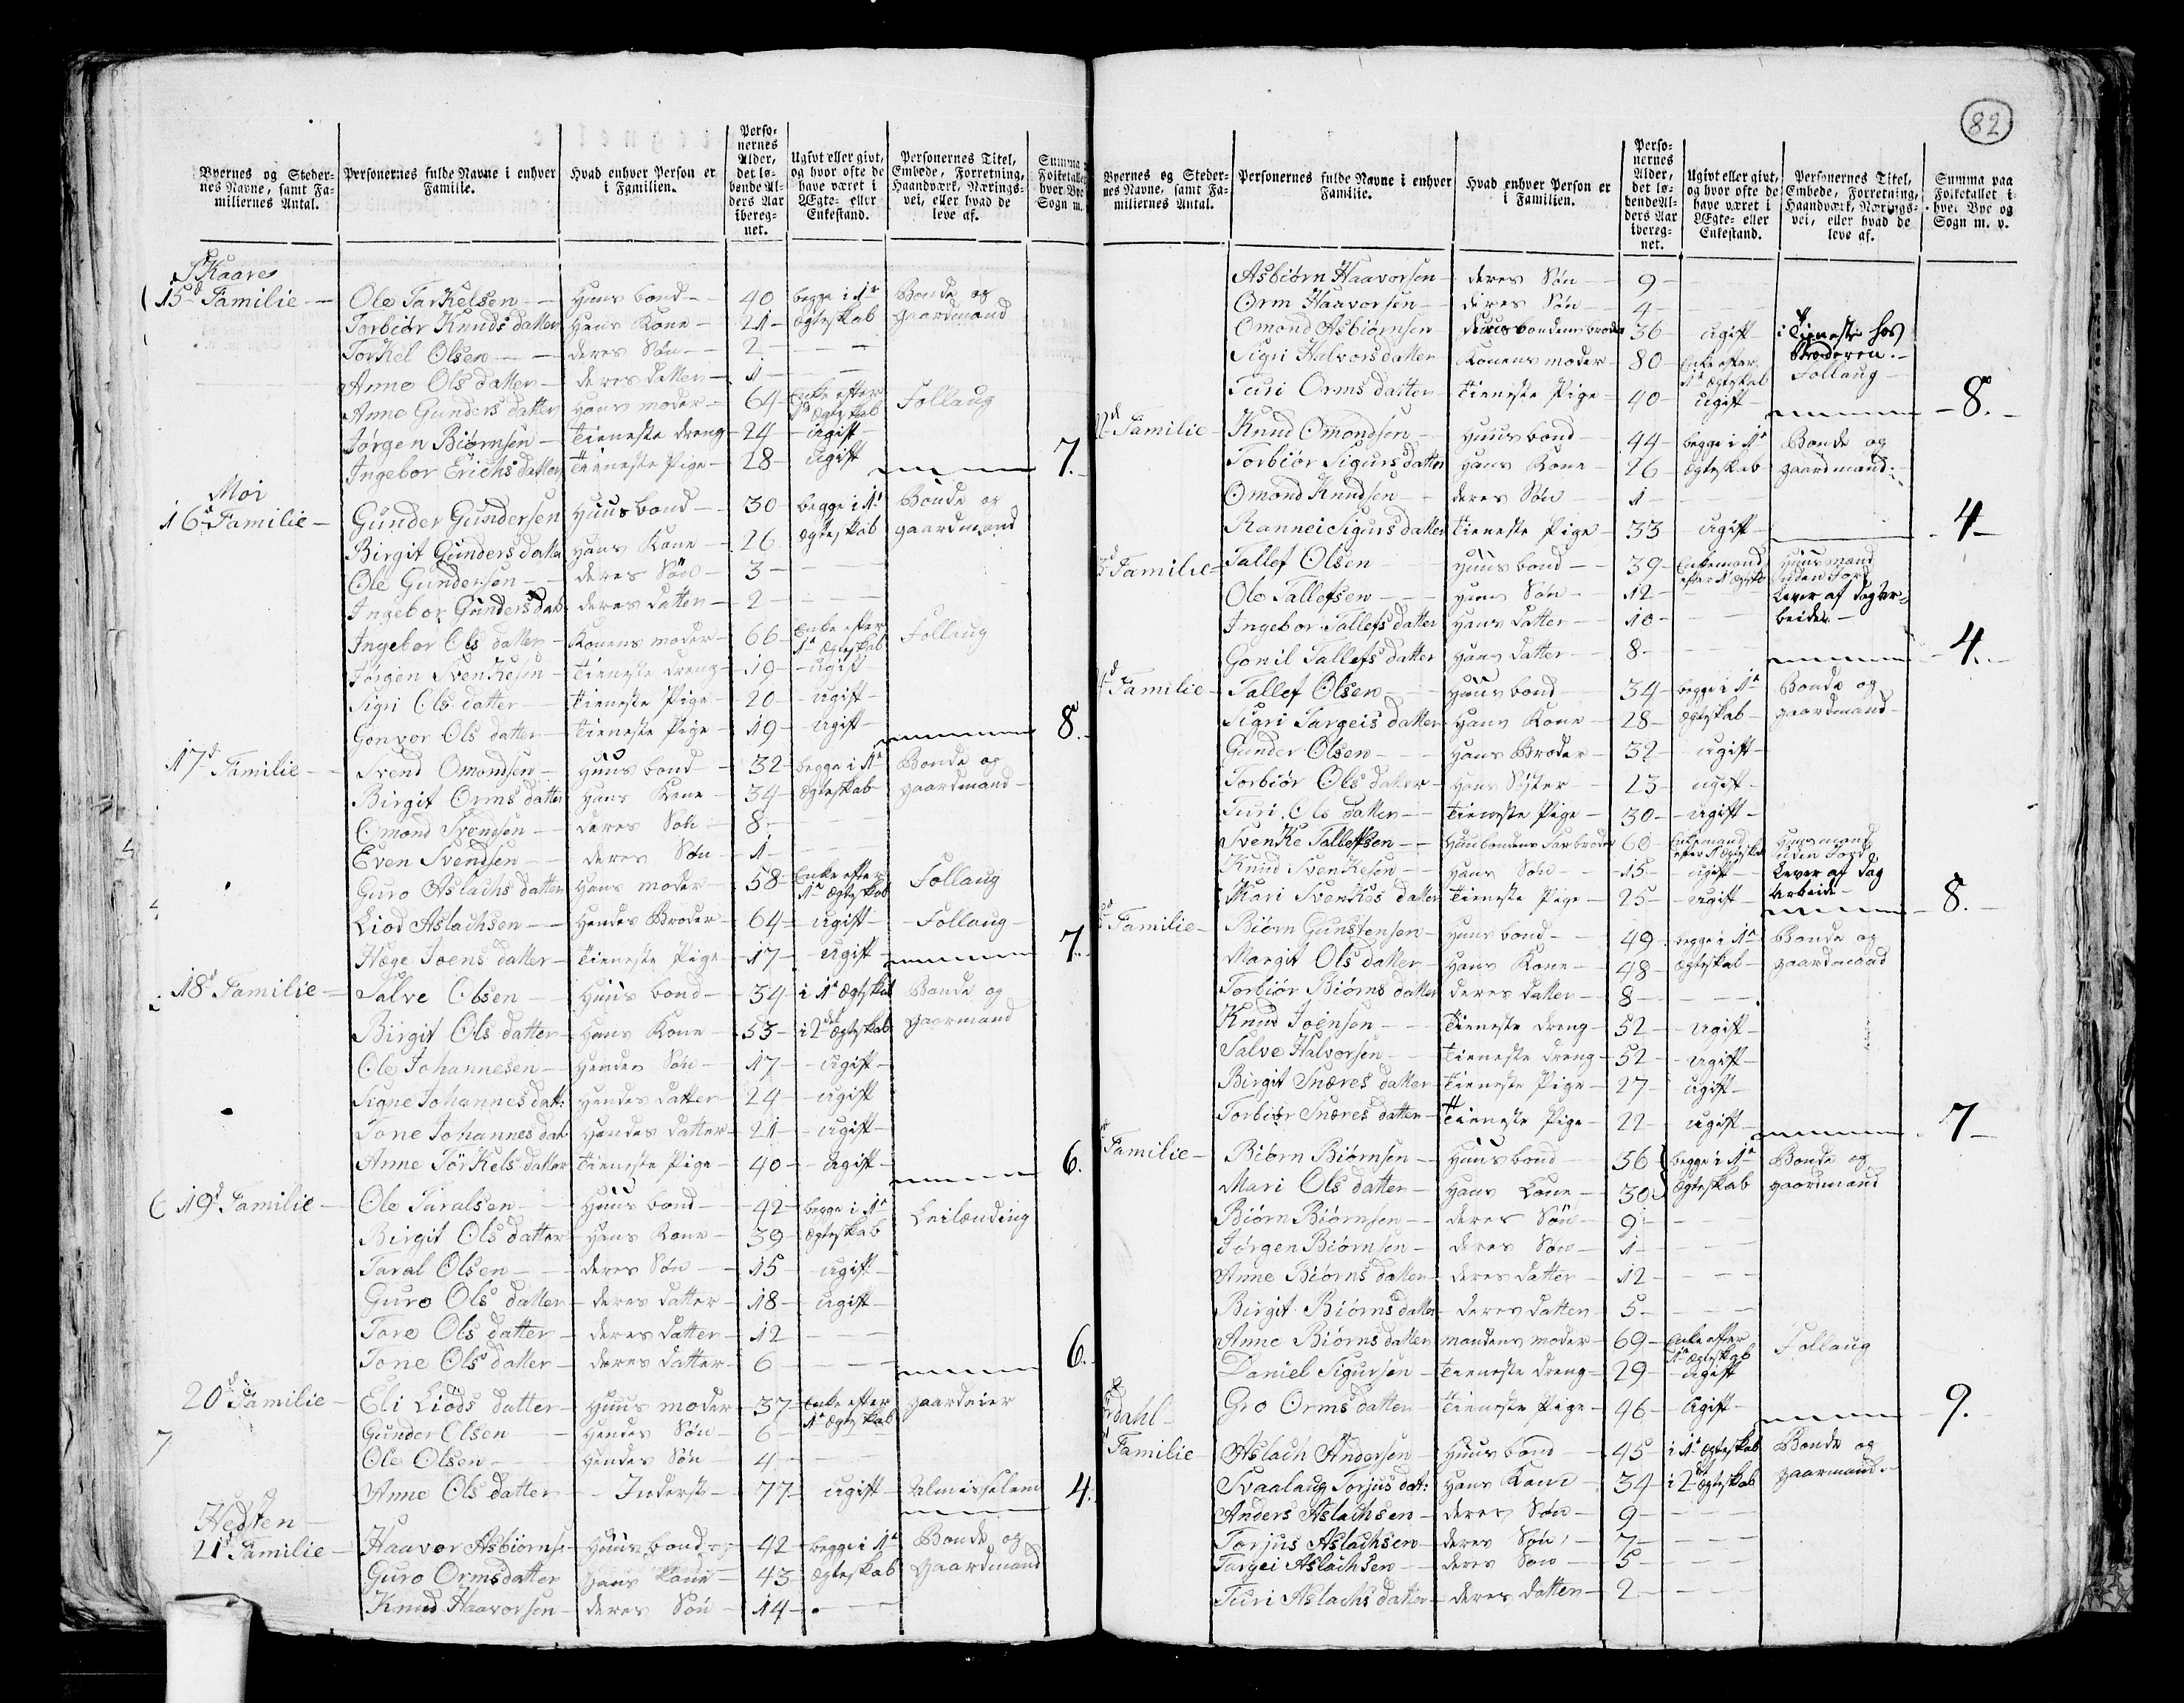 82
Byernes og Steder-
nes Navne, samt Fa-
miliernes Antal.
Personernes fulde Navne i enhver
Familie.
Hvad enhver Person er
i Familien.
Perso-
nernes
Alder,
det lø-
bende Al-
ders Aar
ibereg-
net.
Ugivt eller givt,
og hvor ofte de
have været i
Ægte- eller
Enkestand.
Personernes Titel,
Embede, Forretning,
Haandværk, Nærings-
vei, eller hvad de
leve af.
Summa
Folketallet
hver Bye
Sogn m.
Skaare
15d Familie - Ole Tarkelsen - Huusbond - 40 begge i 1te Bonde og
Torbiør Knuds datter Hans Kone - 21 - Ægteskab gaardmand
Torkel Olsen - deres Søn - 2 -
Anne Ols datter - deres datter - 1 -
Anne Gunders datter Hans moder - 64 - Enke efter 1te Ægteskab Follaug
Jørgen Biørnsen - Tieneste dreng - 24 - ugift -
Ingebor Erichs datter Tieneste Pige - 28 - ugift 7.
Moi
16d Familie - Gunder Gundersen Huusbond - 30 - begge i 1te Bonde og
Birgit Gunders datter Hans Kone - 26 Ægteskab gaardmand
Ole Gundersen - deres Søn - 3 -
Ingebor Gunders dat: deres datter - 2 -
Ingebor Ols datter - Konens moder - 66 - Enke efter 1te Ægteskab Follaug
Jørgen Svenkesen - Tieneste dreng - 19 - ugift
Sigri Ols datter - Tieneste Pige - 20 - ugift -
Gonvor Ols datter - Tieneste Pige - 19 - ugift - 8.
17d Familie - Svend Omondsen - Huusbond - 32 - begge i 1te Bonde og
Birgit Orms datter Hans Kone - 34 - Ægteskab gaardmand -
Omond Svendsen - deres Søn - 8 -
Even Svendsen - deres Søn - 1 -
Guro Aslachs datter Hans moder - 58 - Enke efter 1te Ægteskab Follaug
Liod Aslachsen - Hendes Broder - 64 - ugift - Follaug -
Hæge Joens datter - Tieneste Pige - 17 - ugift - 7.
18d Familie - Salve Olsen - Huusbond - 34 - i 1te Ægteskab Bonde og
Birgit Ols datter - Hans Kone - 53 - i 2det Ægteskab gaarmand
Ole Johannesen - Hendes Søn - 17 - ugift -
Signe Johannes dat: Hendes datter 24 - ugift
Tone Johannes dat Hendes datter - 21 - ugift -
Anne Törkels datter Tieneste Pige - 40 - ugift - 6.
19d Familie - Ole Taralsen - Huusbond - 42 - begge i 1te Leilænding
Birgit Ols datter - Hans Kone - 39 - Ægteskab
Taral Olsen - deres Søn - 15 - ugift
Guro Ols datter - deres datter - 18 - ugift -
Tore Ols datter - deres datter - 12
Tone Ols datter - deres datter - 6 - 6.
20d Familie - Eli Liods datter - Huus moder - 37 - Enke efter 1te Ægteskab gaardeier
Gunder Olsen - Hendes Søn - 6 -
Ole Olsen - Hendes Søn - 4 -
Anne Ols datter - Inderste - 77 - ugift - Almisselem 4.
Hedsten -
21d Familie - Haavor Asbiørns: Huusbond - 42 - begge i 1te Bonde og
Guro Orms datter Hans Kone - 43 - Ægteskab gaardmand
Knud Haavorsen - deres Søn - 14 -
Byernes og Steder-
nes Navne, samt Fa-
miliernes Antal.
Personernes fulde Navne i enhver
Familie.
Hvad enhver Person er
i Familien.
Perso-
nernes
Alder,
det lø-
bende Al-
ders Aar
ibereg-
net.
Ugivt eller givt,
og hvor ofte de
have været i
Ægte- eller
Enkestand.
Personernes Titel,
Embede, Forretning,
Haandværk, Nærings-
vei, eller hvad de
leve af.
Summa paa
Folketallet i
hver Bye og
Sogn m. v.
Asbiørn Haavorsen - deres Søn - 9 -
Orm Haavorsen - deres Søn - 4 -
Omond Asbiørnsen Huusbondens broder 36 - ugift - i Tieneste hos Broderen. -
Sigri Halvors datter Konens moder - 80 - Enke efter 1te Ægteskab Follaug -
Turi Orms datter - Tieneste Pige - 40 - ugift - 8. -
Familie - Knud Omondsen - Huusbond - 44 - begge i 1te Bonde og
Torbiør Sigurs datter Hans Kone - 26 - Ægteskab gaardmand. -
Omond Knudsen - deres Søn - 1 -
Rannei Sigurs datter Tieneste Pige - 33 ugift - 4 -
Familie - Tallef Olsen Huusbond - 39 - Enkemand efter 1te Ægtes: Huusmand uden Jord
Ole Tallefsen - Hans Søn - 12 - Lever af dag Ar-
Ingebor Tallefs datter Hans datter - 10 - beide. -
Gonil Tallefs datter Hans datter - 8 - 4. -
Familie - Tallef Olsen - Huusbond - 34 - begge i 1te Bonde og
Sigri Targeis datter Hans Kone - 28 - Ægteskab - gaardmand -
Gunder Olsen - Hans Broder - 32 - ugift -
Torbiør Ols datter - Hans Søster - 23 - ugift -
Turi Ols datter - Tieneste Pige - 30 - ugift -
Svenke Tallefsen - Huusbondens Farbroder 60 - Enkemand efter 1te Ægteska Huusmand uden Jord
Knud Svenkesen - Hans Søn - 15 - ugift - Lever af dag
Mari Svenkes datter Tieneste Pige - 25 - ugift Arbeide - 8. -
Familie - Biørn Gunstensen - Huusbond - 49 - begge i 1te Bonde og
Margit Ols datter - Hans Kone - 48 - Ægteskab - gaardmand
Torbiør Biørns datter deres datter - 8 -
Knud Joensen - Tieneste dreng - 52 - ugift -
Salve Halvorsen - Tieneste dreng - 52 - ugift -
Birgit Snæres datter Tieneste Pige - 27 - ugift -
Torbiør Snæres datter - Tieneste Pige - 22 - ugift - 7 -
Familie - Biørn Biørnsen - Huusbond - 56 begge i 1te Bonde og
Mari Ols datter - Hans Kone - 30 Ægteskab gaardmand
Biørn Biørnsen - deres Søn - 9 -
Jørgen Biørnsen - deres Søn - 1 -
Anne Biørns datter - deres datter - 12 -
Birgit Biørns datter - deres datter - 5 -
Anne Biørns datter mandens moder - 69 - Enke efter 1te Ægteskab Follaug
Daniel Sigursen - Tieneste dreng - 29 - ugift
Gro Orms datter - Tieneste Pige - 46 - ugift - 9.
dahl -
Familie - Aslach Andersen - Huusbond - 45 - i 1te Ægteskab Bonde og
Svaalaug Torjus dat: Hans Kone - 34 - i 2 Ægteskab gaarmand. -
Anders Aslachsen - deres Søn - 9 -
Torjus Aslachsen - deres Søn - 7 -
Targei Aslachsen - deres Søn - 5 -
Turi Aslachs datter - deres datter - 2 -